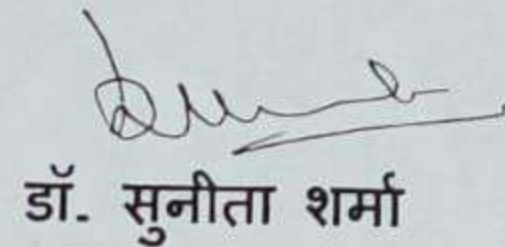 डॉ. सुनीता शर्मा